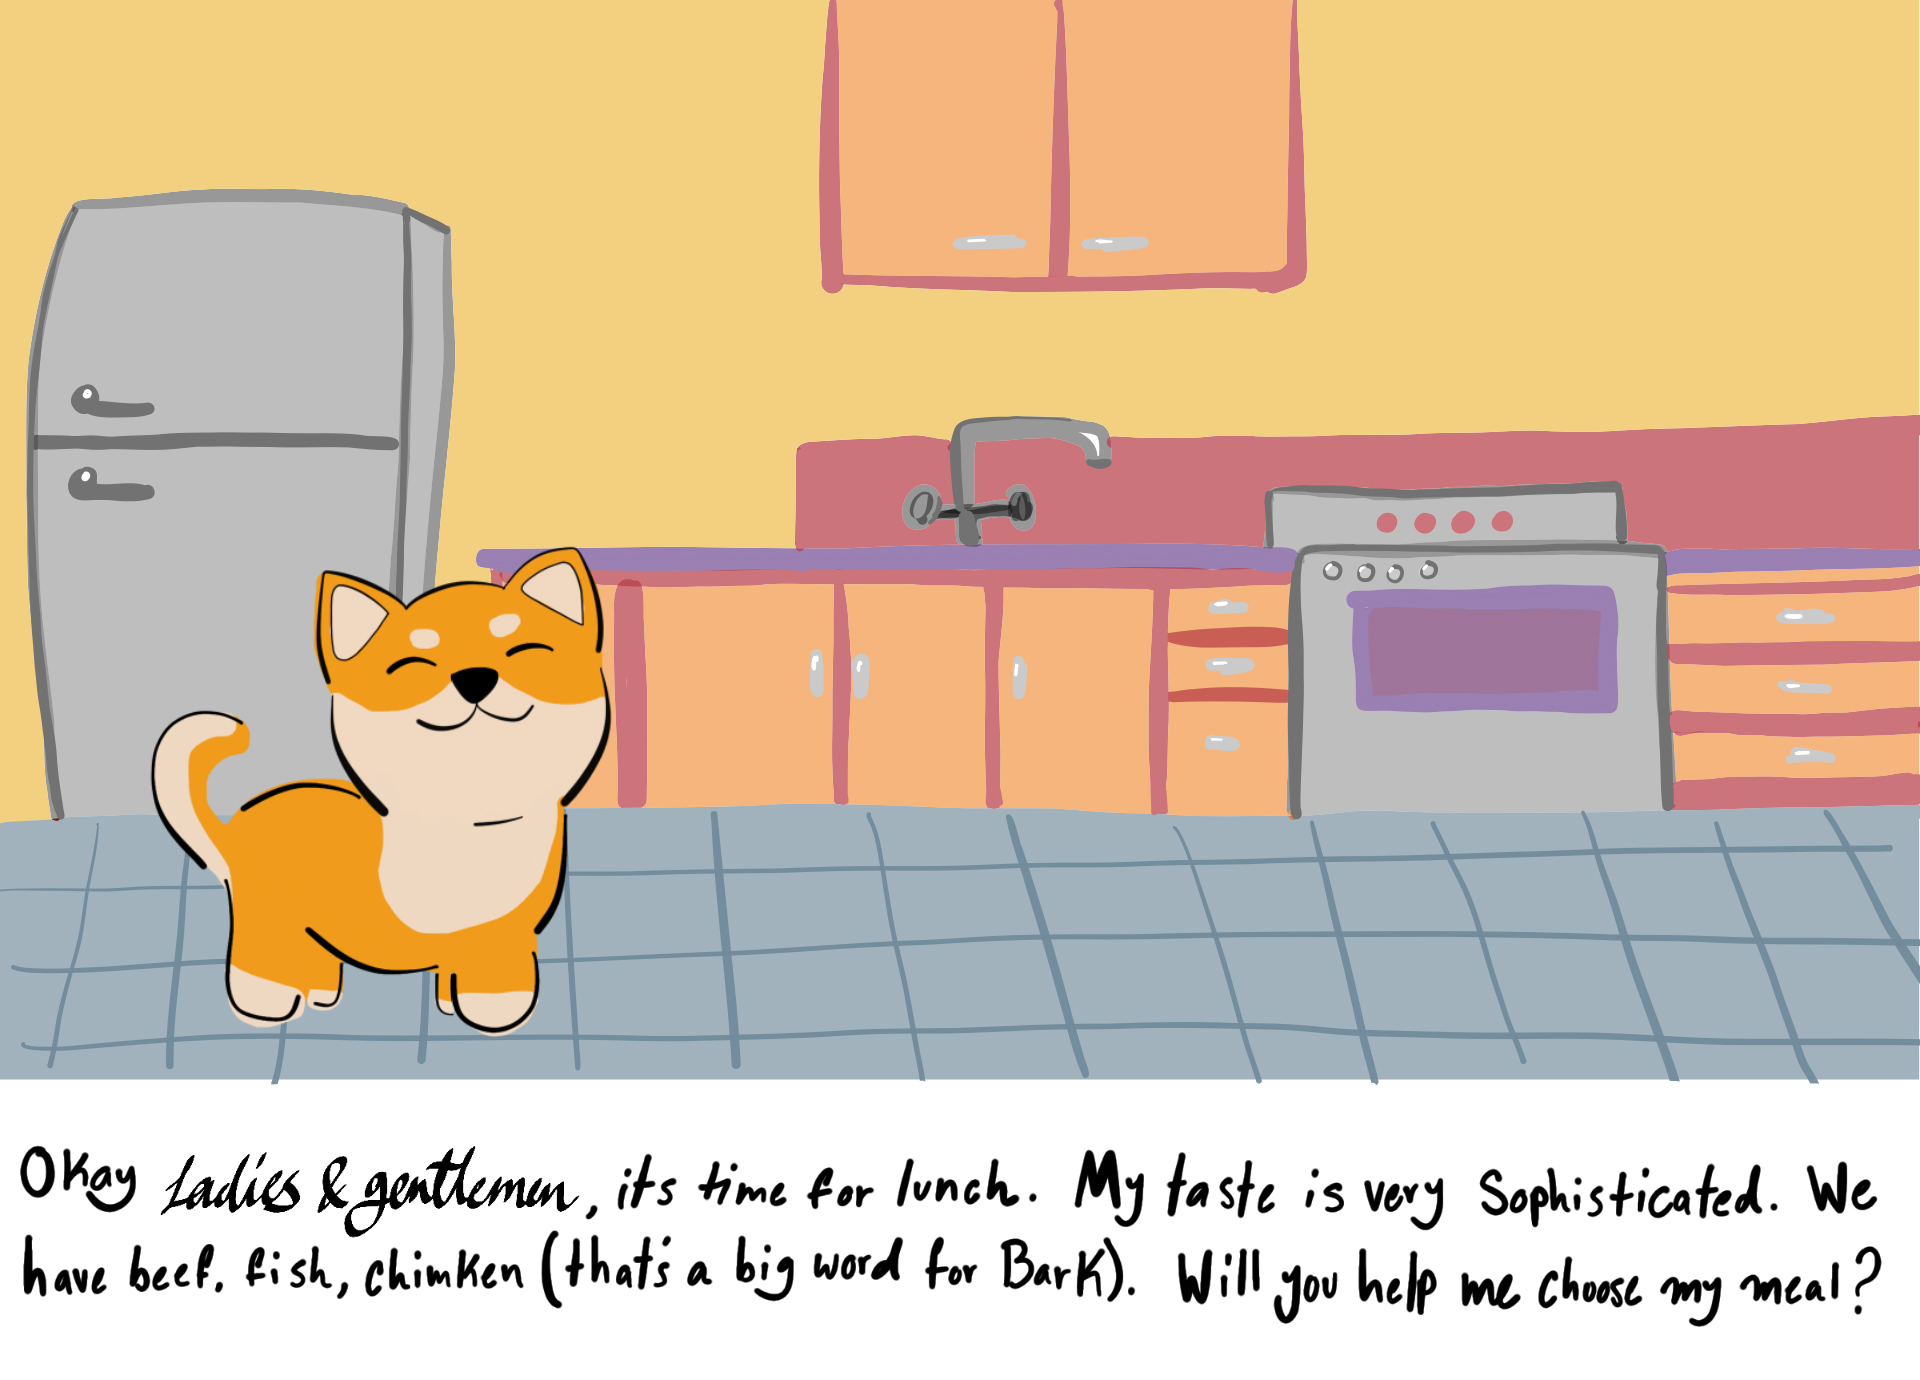 Okay Ladies & gentlemen, its time for lunch. My taste is very Sophisticated. We
have beef, fish, chimken (that's a big word for Bark). Will you help me choose my meal?